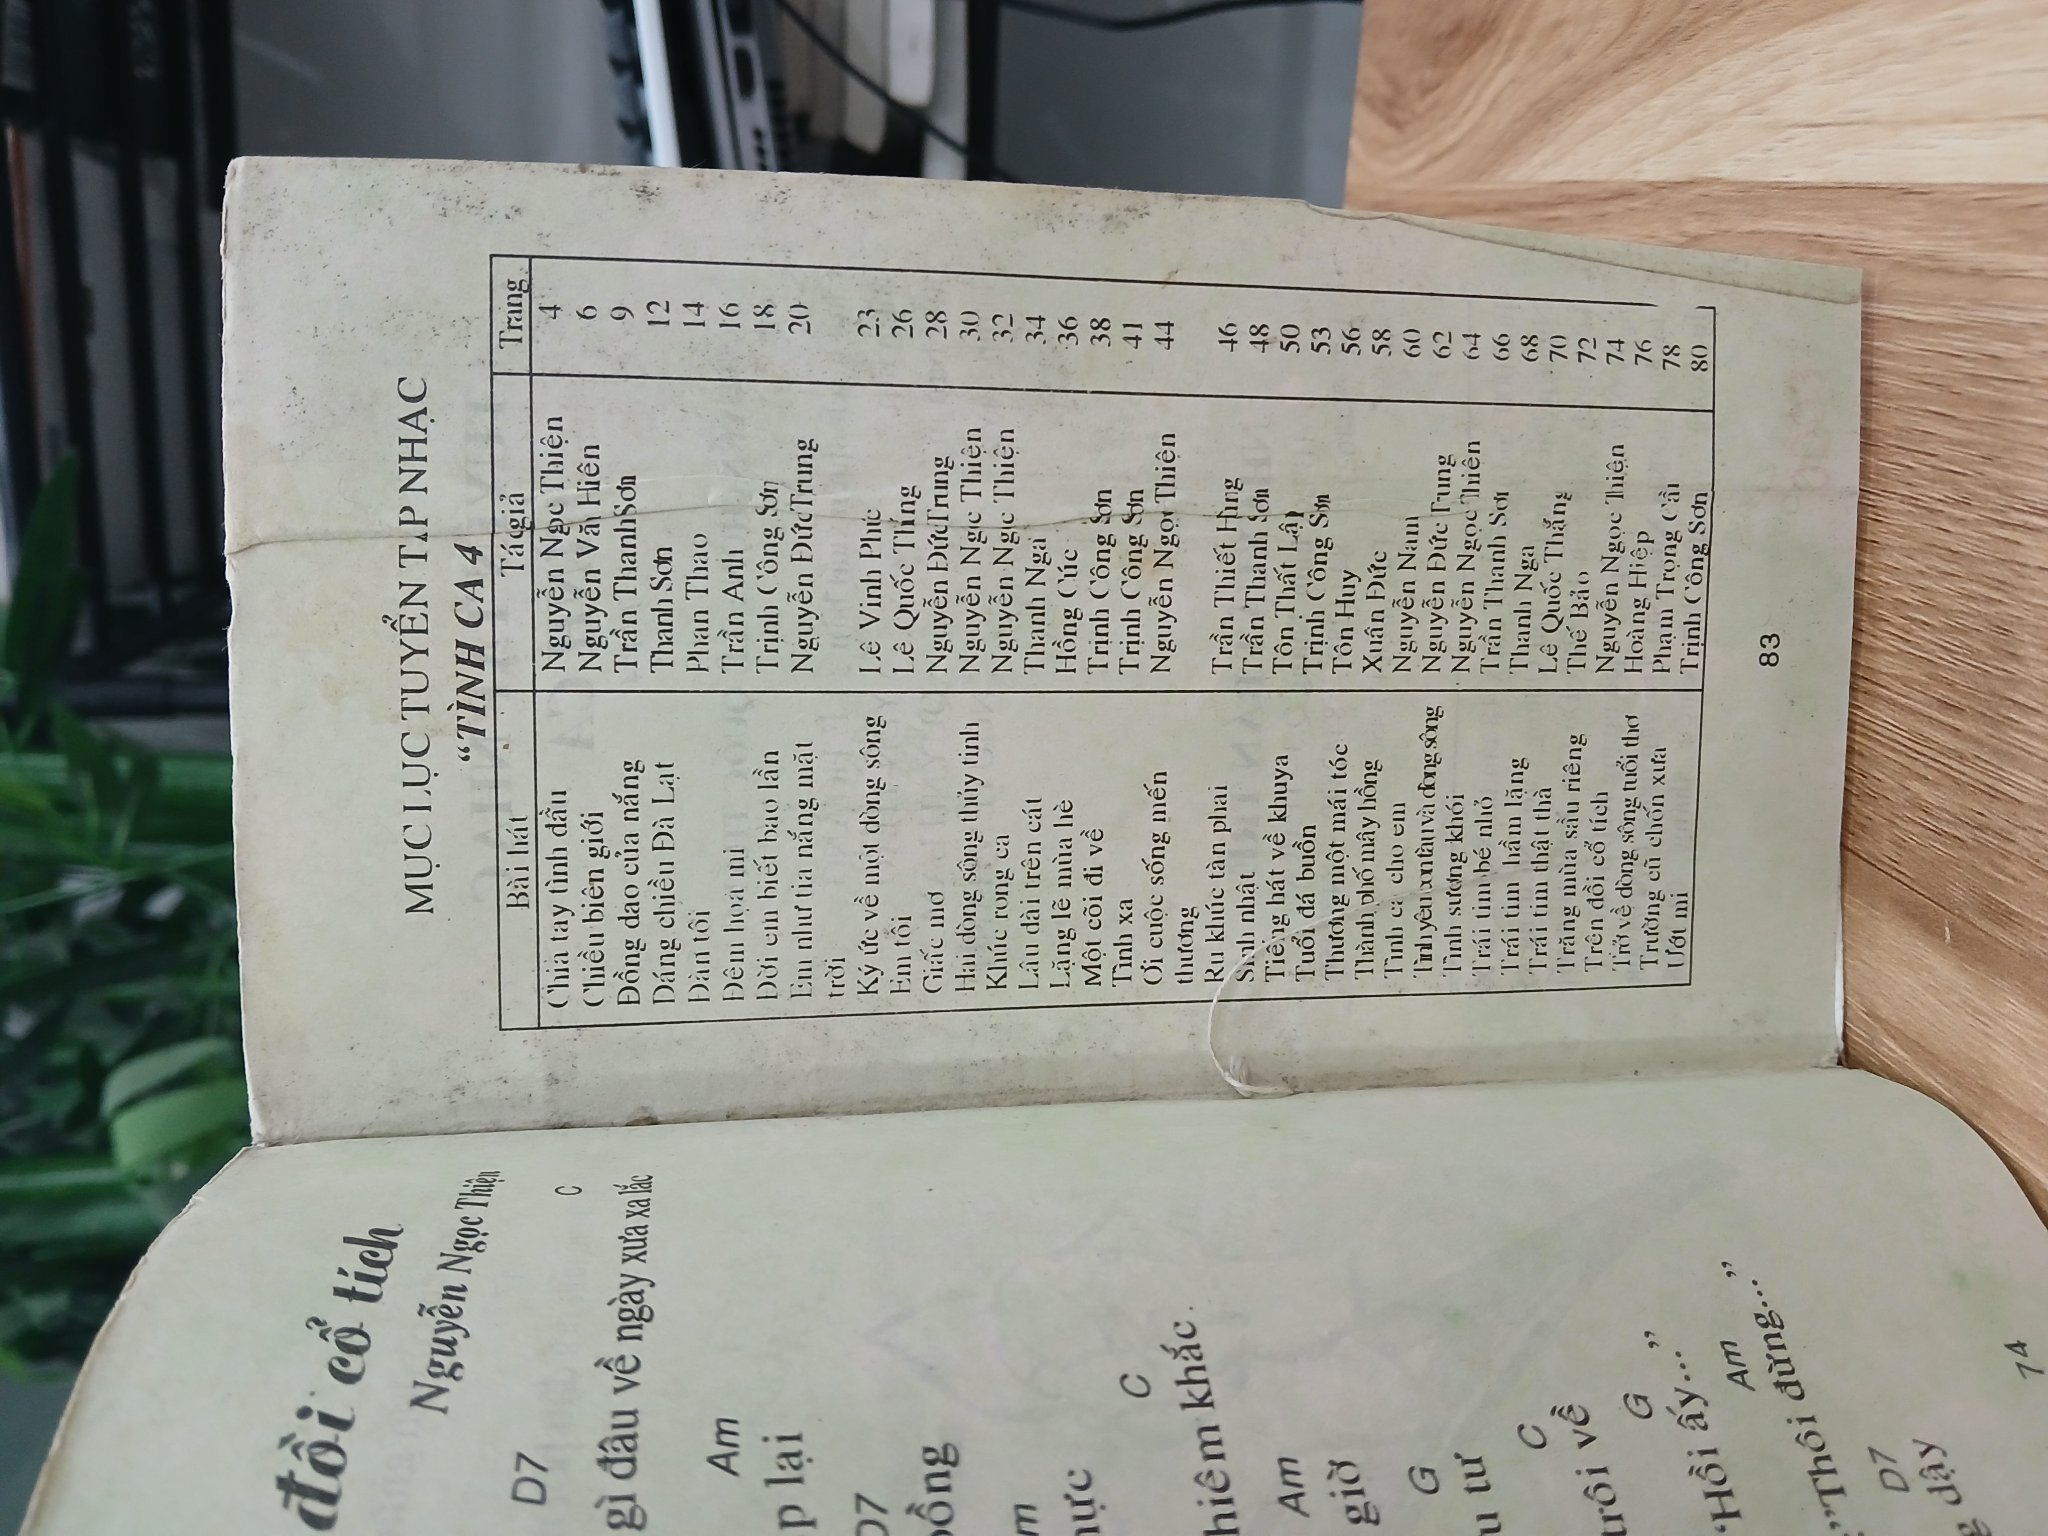 MỤC LỤC TUYỂN TẬP NHẠC
“TÌNH CA 4
Bài hát Tác giả Trang
Chia tay tình đầu Nguyễn Ngọc Thiện 4
Chiều biên giới Nguyễn Văn Hiên 6
Đồng dao của nắng Trần Thanh Sơn 9
Dáng chiều Đà Lạt Thanh Sơn 12
Đàn tôi Phan Thao 14
Đêm họa mi Trần Anh 16
Đời em biết bao lần Trịnh Công Sơn 18
Em như tia nắng mặt Nguyễn Đức Trung 20
trời
Ký ức về một dòng sông Lê Vinh Phúc 23
Em tôi Lê Quốc Thắng 26
Giấc mơ Nguyễn Đức Trung 28
Hai dòng sông thủy tinh Nguyễn Ngọc Thiện 30
Khúc rong ca Nguyễn Ngọc Thiện 32
Lâu đài trên cát Thanh Nga 34
Lặng lẽ mùa hè Hồng Cúc 36
Một cõi đi về Trịnh Công Sơn 38
Tình xa Trịnh Công Sơn 41
Ơi cuộc sống mến Nguyễn Ngọc Thiện 44
thương
Ru khúc tàn phai Trần Thiết Hùng 46
Sinh nhật Trần Thanh Sơn 48
Tiếng hát về khuya Tôn Thất Lập 50
Tuổi đá buồn Trịnh Công Sơn 53
Thương một mái tóc Tôn Huy 56
Thành phố nây hồng Xuân Đức 58
Tình ca cho em Nguyễn Nam 60
Tình yêu con tàu và dòng sông Nguyễn Đức Trung 62
Tình sương khói Nguyễn Ngọc Thiện 64
Trái tim bé nhỏ Trần Thanh Sơn 66
Trái tim hầm lặng Thanh Nga 68
Trái tim thật thà Lê Quốc Thắng 70
Trăng mùa sầu riêng Thế Bảo 72
Trên đồi cổ tích Nguyễn Ngọc Thiện 74
Trở về dòng sông tuổi thơ Hoàng Hiệp 76
Trường cũ chốn xưa Phạm Trọng Cầu 78
Ướt mi Trịnh Công Sơn 80
83
đồi cổ tích
Nguyễn Ngọc Thiện
D7 C
gì đâu về ngày xưa xa lắc
Am
p lại
D7
C
hiêm khắc.
Am
giờ
G
u tư
C
ưôi về
G
“Hồi ấy...”
Am
”Thôi đừng...”
D7
dậy
74